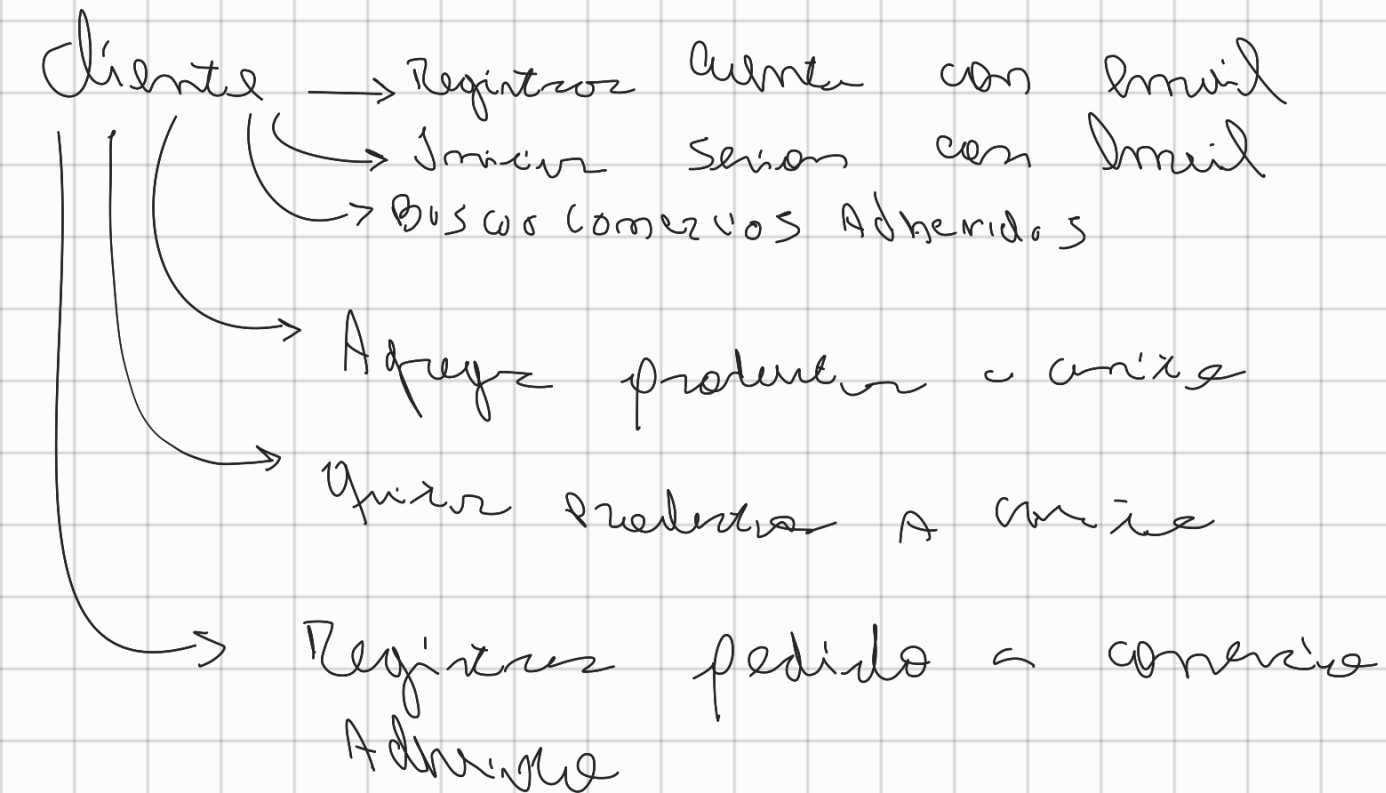 Cliente → Registrar cuenta con email
→ Iniciar sesion con Email
→ Buscar Comercios Adheridos
→ Agregar productos a
→ Quitar productos A
→ Registrar pedido a comercio
Adherido